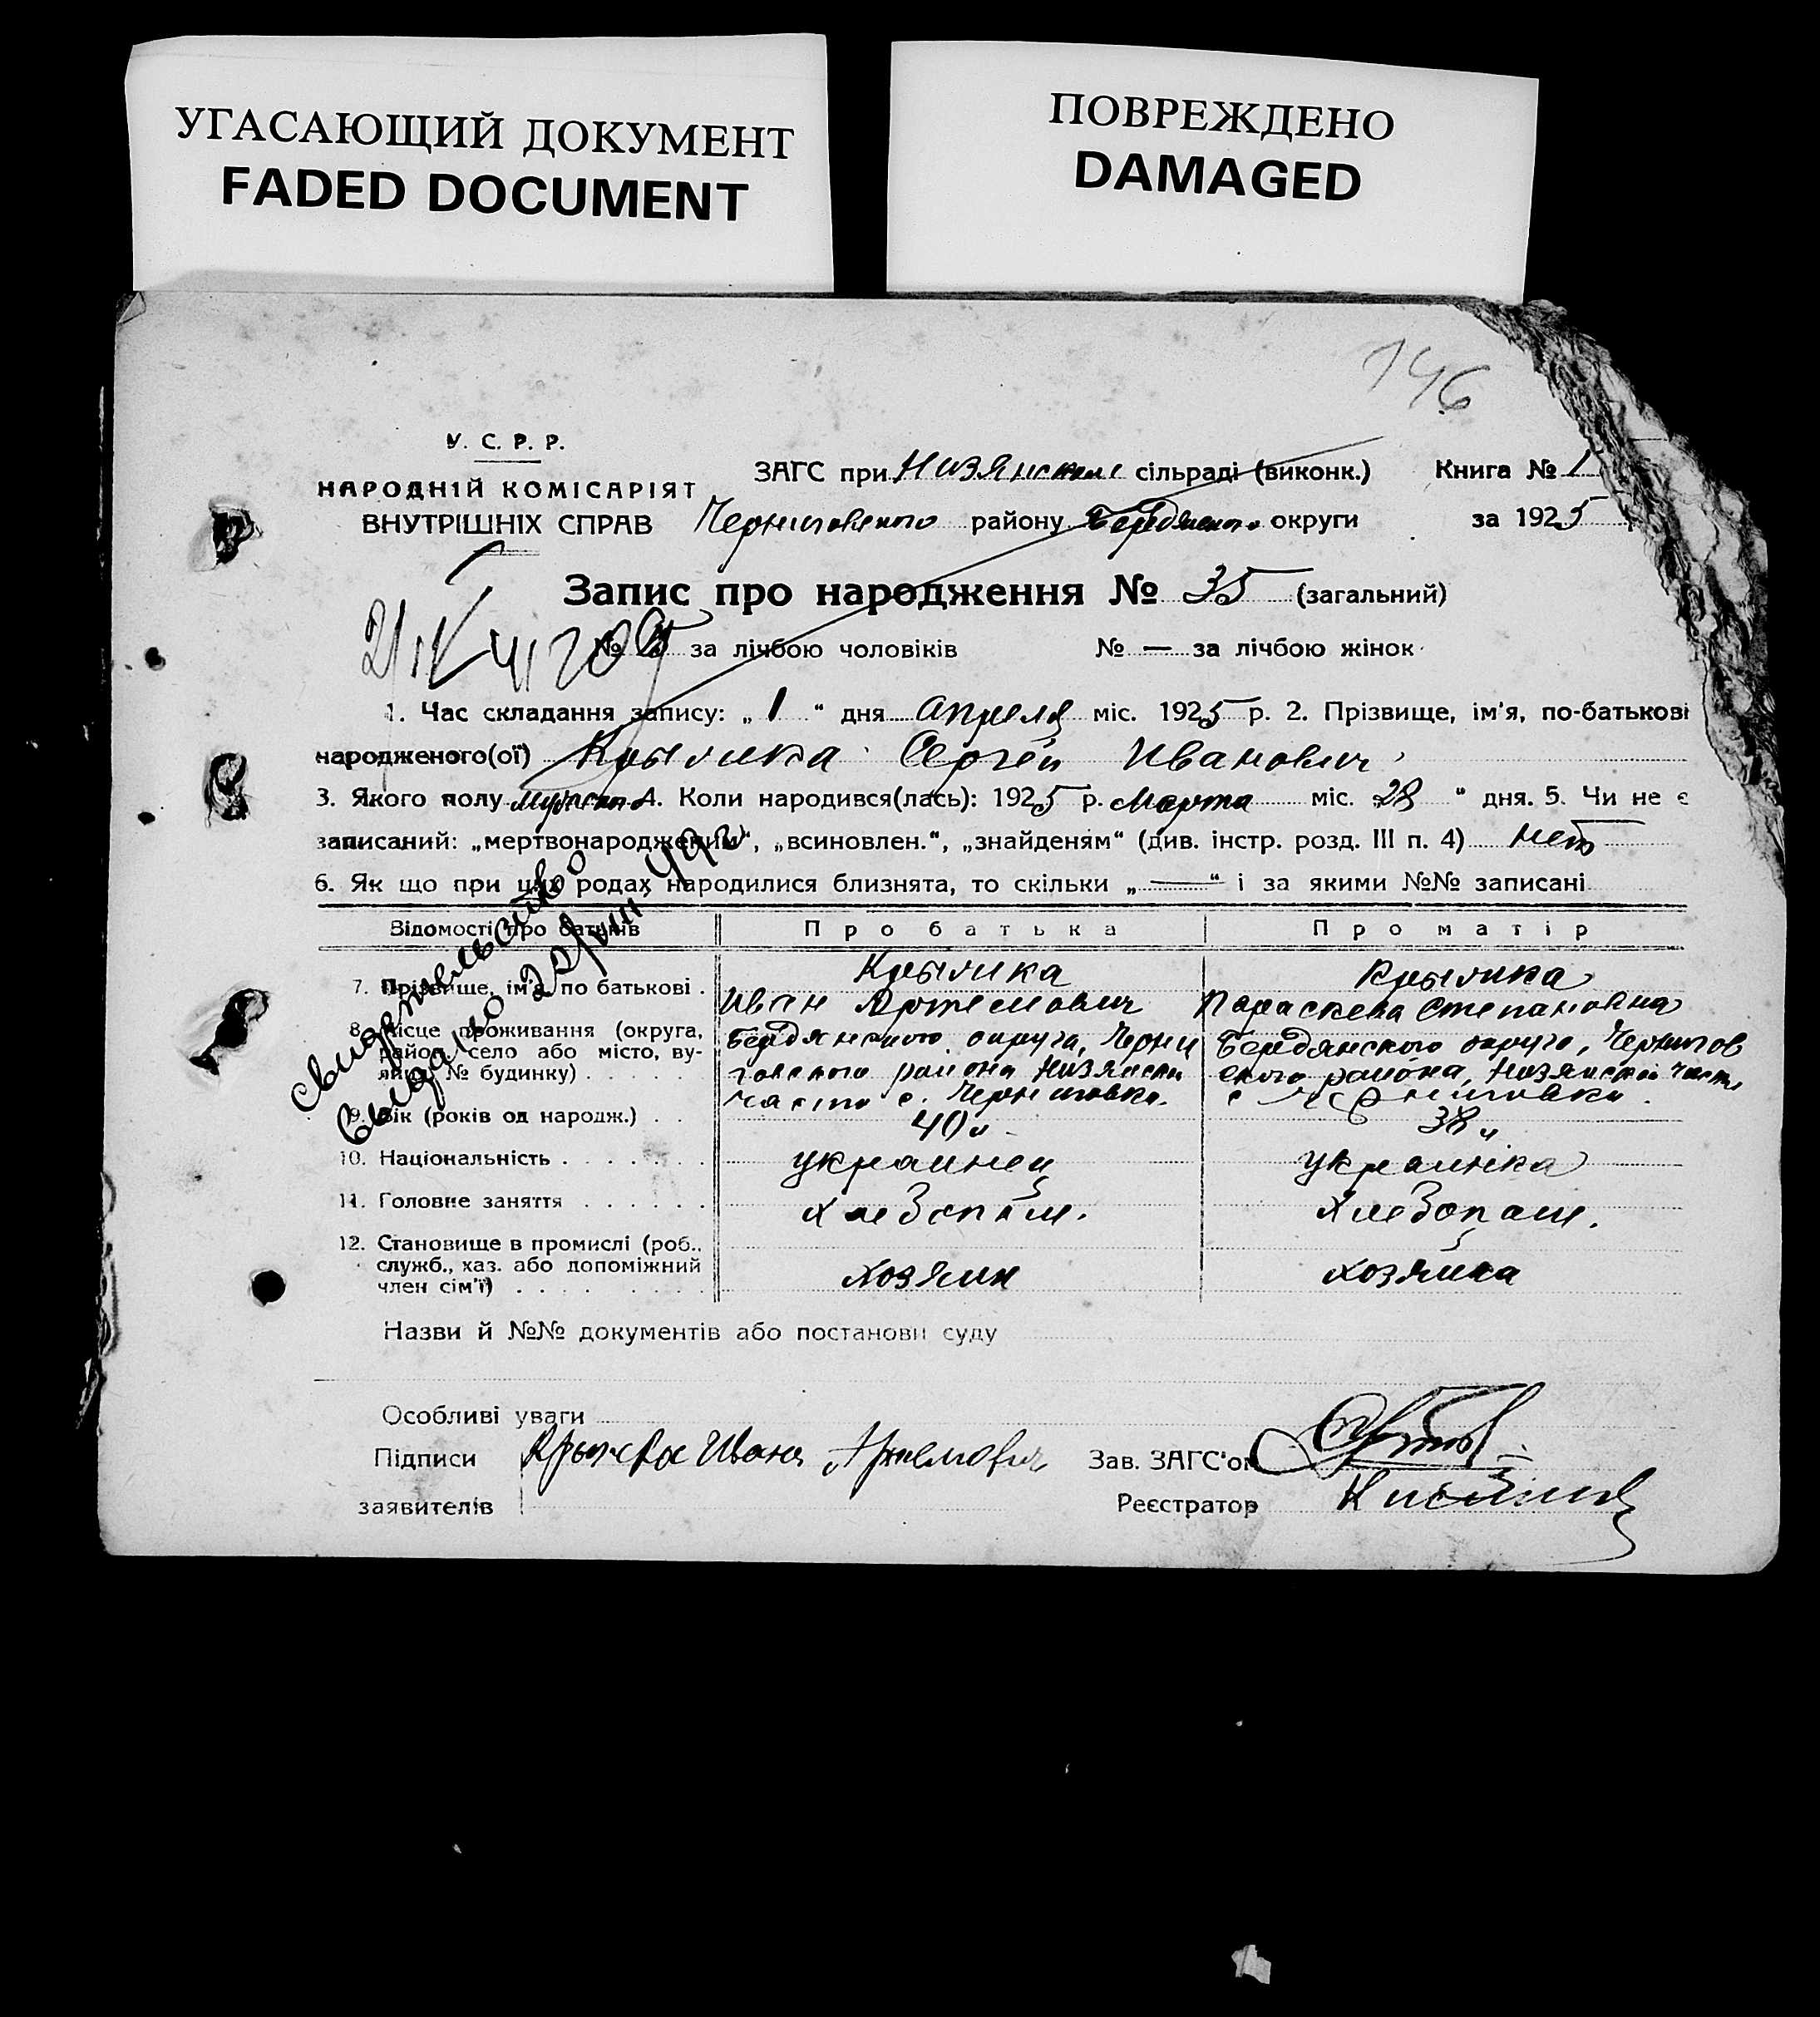 УГАСАЮЩИЙ ДОКУМЕНТ
FADED DOCUMENT
ПОВРЕЖДЕНО
DAMAGED
146
У. С. Р. Р.
НАРОДНІЙ КОМІСАРІЯТ
ВНУТРІШНІХ СПРАВ
ЗАГС при Низянском сільраді (виконк.) Книга № 1
Черниговского району Бердянского округи за 1925
Запис про народження № 35 (загальний)
№ за лічбою чоловіків № — за лічбою жінок
1. Час складання запису: „ 1 “ дня апреля міс. 1925 р. 2. Прізвище, ім'я, по-батькові
народженого(ої) Крылика Сергей Иванович
3. Якого полу мужского 4. Коли народився(лась): 1925 р. марта міс. 28 " дня. 5. Чи не є
записаний: „мертвонародженим“, „всиновлен.“, „знайденям“ (див. інстр. розд. III п. 4) нет
6. Як що при цих родах народилися близнята, то скільки „ — “ і за якими №№ записані
Відомості про батьків Про батька Про матір
7. Прізвище, ім'я, по батькові . Крылика Иван Артемович Крылика Параскева Степановна
8. Місце проживання (округа, район, село або місто, вулиця, № будинку) . . . . .
Бердянского округа, Черни
говского района Низянск
части с. Черниговка.
Бердянского округа, Чернигов
ского района, Низянской части
с Черниговки.
9. Вік (років од народж.) . . 40 38
10. Національність . . . . . . . украинец украинка
11. Головне заняття . . . . . . хлебопаш. хлебопаш.
12. Становище в промислі (роб.,
служб., хаз. або допоміжний
член сім'ї) . . . . . . . . хозяин хозяйка
Свидетельство
выдано 22/VIII
Назви й №№ документів або постанови суду
Особливі уваги
Підписи Крылика Иван Артемович Зав. ЗАГС'ом
заявителів Реєстратор